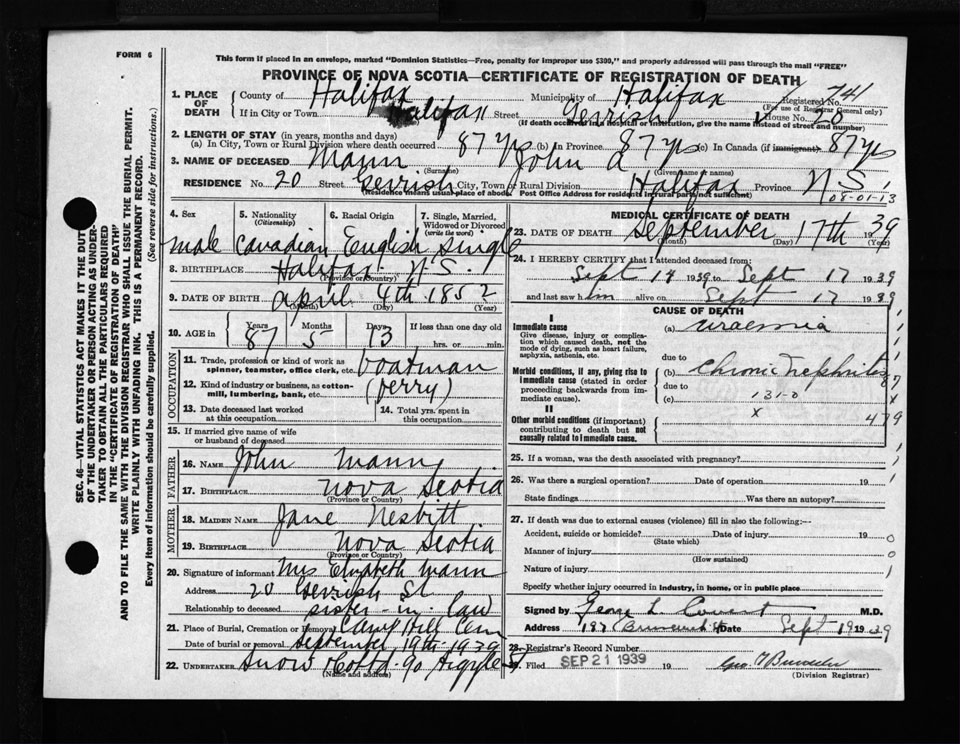 FORM 6
This form if placed in an envelope, marked "Dominion Statistics—Free, penalty for improper use $300," and properly addressed will pass through the mail "FREE"
PROVINCE OF NOVA SCOTIA—CERTIFICATE OF REGISTRATION OF DEATH
SEC. 46—VITAL STATISTICS ACT MAKES IT THE DUTY
OF THE UNDERTAKER OR PERSON ACTING AS UNDER-
TAKER TO OBTAIN ALL THE PARTICULARS REQUIRED
IN THE "CERTIFICATE OF REGISTRATION OF DEATH"
AND TO FILE THE SAME WITH THE DIVISION REGISTRAR WHO SHALL ISSUE THE BURIAL PERMIT.
WRITE PLAINLY WITH UNFADING INK. THIS IS A PERMANENT RECORD.
Every item of information should be carefully supplied. (See reverse side for instructions.)
1. PLACE OF DEATH County of Halifax Municipality of Halifax Registered No. 741
(For use of Registrar General only)
If in City or Town Halifax Street Gerrish House No. 20
(If death occurred in a hospital or institution, give the name instead of street and number)
2. LENGTH OF STAY (in years, months and days)
(a) In City, Town or Rural Division where death occurred 87 yrs (b) In Province 87 yrs (c) In Canada (if immigrant) 87 yrs
3. NAME OF DECEASED Mann John A
(Surname) (Given name or names)
RESIDENCE No. 20 Street Gerrish City, Town or Rural Division Halifax Province N.S.
(Residence means usual place of abode. Post Office Address for residents in rural parts not sufficient)
08-01-13
4. Sex 5. Nationality (Citizenship) 6. Racial Origin 7. Single, Married, Widowed or Divorced (write the word)
male Canadian English Single
8. BIRTHPLACE Halifax N.S.
(Province or Country)
9. DATE OF BIRTH April 4th 1852
(Month) (Day) (Year)
10. AGE in Years 87 Months 5 Days 13 If less than one day old
hrs. or min.
OCCUPATION
11. Trade, profession or kind of work as spinner, teamster, office clerk, etc. boatman
12. Kind of industry or business, as cotton-mill, lumbering, bank, etc. (ferry)
13. Date deceased last worked at this occupation
14. Total yrs. spent in this occupation
15. If married give name of wife or husband of deceased
FATHER
16. NAME John Mann
17. BIRTHPLACE Nova Scotia
(Province or Country)
MOTHER
18. MAIDEN NAME Jane Nesbitt
19. BIRTHPLACE Nova Scotia
(Province or Country)
20. Signature of informant Mrs Elizabeth Mann
Address 20 Gerrish St
Relationship to deceased sister-in-law
21. Place of Burial, Cremation or Removal Camp Hill Cem
Date of burial or removal September 19th 1939
22. UNDERTAKER Snow & Co Ltd 90 Argyle St
(Name and address)
MEDICAL CERTIFICATE OF DEATH
23. DATE OF DEATH September 17th 1939
(Month) (Day) (Year)
24. I HEREBY CERTIFY that I attended deceased from:
Sept 14 1939 to Sept 17 1939
and last saw him alive on Sept 17 1939
CAUSE OF DEATH
I
Immediate cause (a) uraemia
Give disease, injury or complication which caused death, not the mode of dying, such as heart failure, asphyxia, asthenia, etc.
due to
Morbid conditions, if any, giving rise to immediate cause (stated in order proceeding backwards from immediate cause).
(b) Chronic Nephritis
due to
(c) 131-0
x
II
Other morbid conditions (if important) contributing to death but not causally related to immediate cause.
479
25. If a woman, was the death associated with pregnancy?
26. Was there a surgical operation? Date of operation 19
State findings Was there an autopsy?
27. If death was due to external causes (violence) fill in also the following:—
Accident, suicide or homicide? Date of injury 19 0
(State which)
Manner of injury 0
(How sustained)
Nature of injury 1
Specify whether injury occurred in industry, in home, or in public place
Signed by George L. Covert M.D.
Address 197 Brunswick St Date Sept 19 1939
28. Registrar's Record Number
29. Filed SEP 21 1939 19
(Division Registrar)